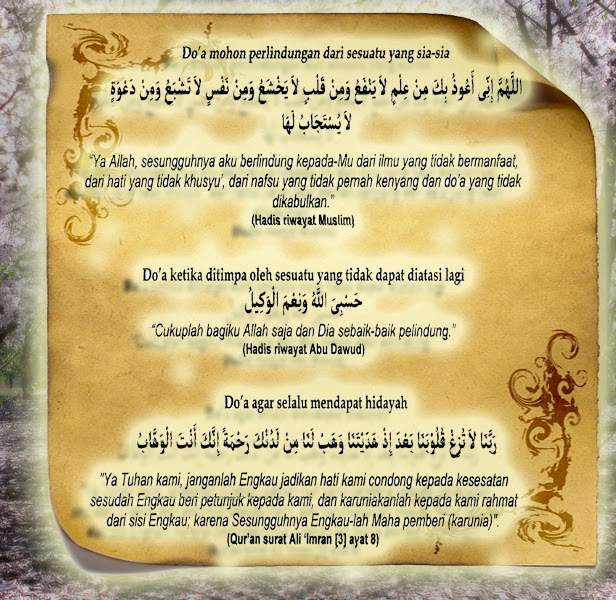 Do'a mohon perlindungan dari sesuatu yang sia-sia
اللَّهُمَّ إِنِّى أَعُوذُ بِكَ مِنْ عِلْمٍ لاَ يَنْفَعُ وَمِنْ قَلْبٍ لاَ يَخْشَعُ وَمِنْ نَفْسٍ لاَ تَشْبَعُ وَمِنْ دَعْوَةٍ
لاَ يُسْتَجَابُ لَهَا
“Ya Allah, sesungguhnya aku berlindung kepada-Mu dari ilmu yang tidak bermanfaat,
dari hati yang tidak khusyu’, dari nafsu yang tidak pernah kenyang dan do’a yang tidak
dikabulkan.”
(Hadis riwayat Muslim)
Do’a ketika ditimpa oleh sesuatu yang tidak dapat diatasi lagi
حَسْبِىَ اللَّهُ وَنِعْمَ الْوَكِيلُ
“Cukuplah bagiku Allah saja dan Dia sebaik-baik pelindung.”
(Hadis riwayat Abu Dawud)
Do’a agar selalu mendapat hidayah
رَبَّنَا لاَ تُزِغْ قُلُوْبَنَا بَعْدَ إِذْ هَدَيْتَنَا وَهَبْ لَنَا مِنْ لَدُنْكَ رَحْمَةً إِنَّكَ أَنْتَ الْوَهَّابُ
"Ya Tuhan kami, janganlah Engkau jadikan hati kami condong kepada kesesatan
sesudah Engkau beri petunjuk kepada kami, dan karuniakanlah kepada kami rahmat
dari sisi Engkau; karena Sesungguhnya Engkau-lah Maha pemberi (karunia)".
(Qur’an surat Ali ‘Imran [3] ayat 8)